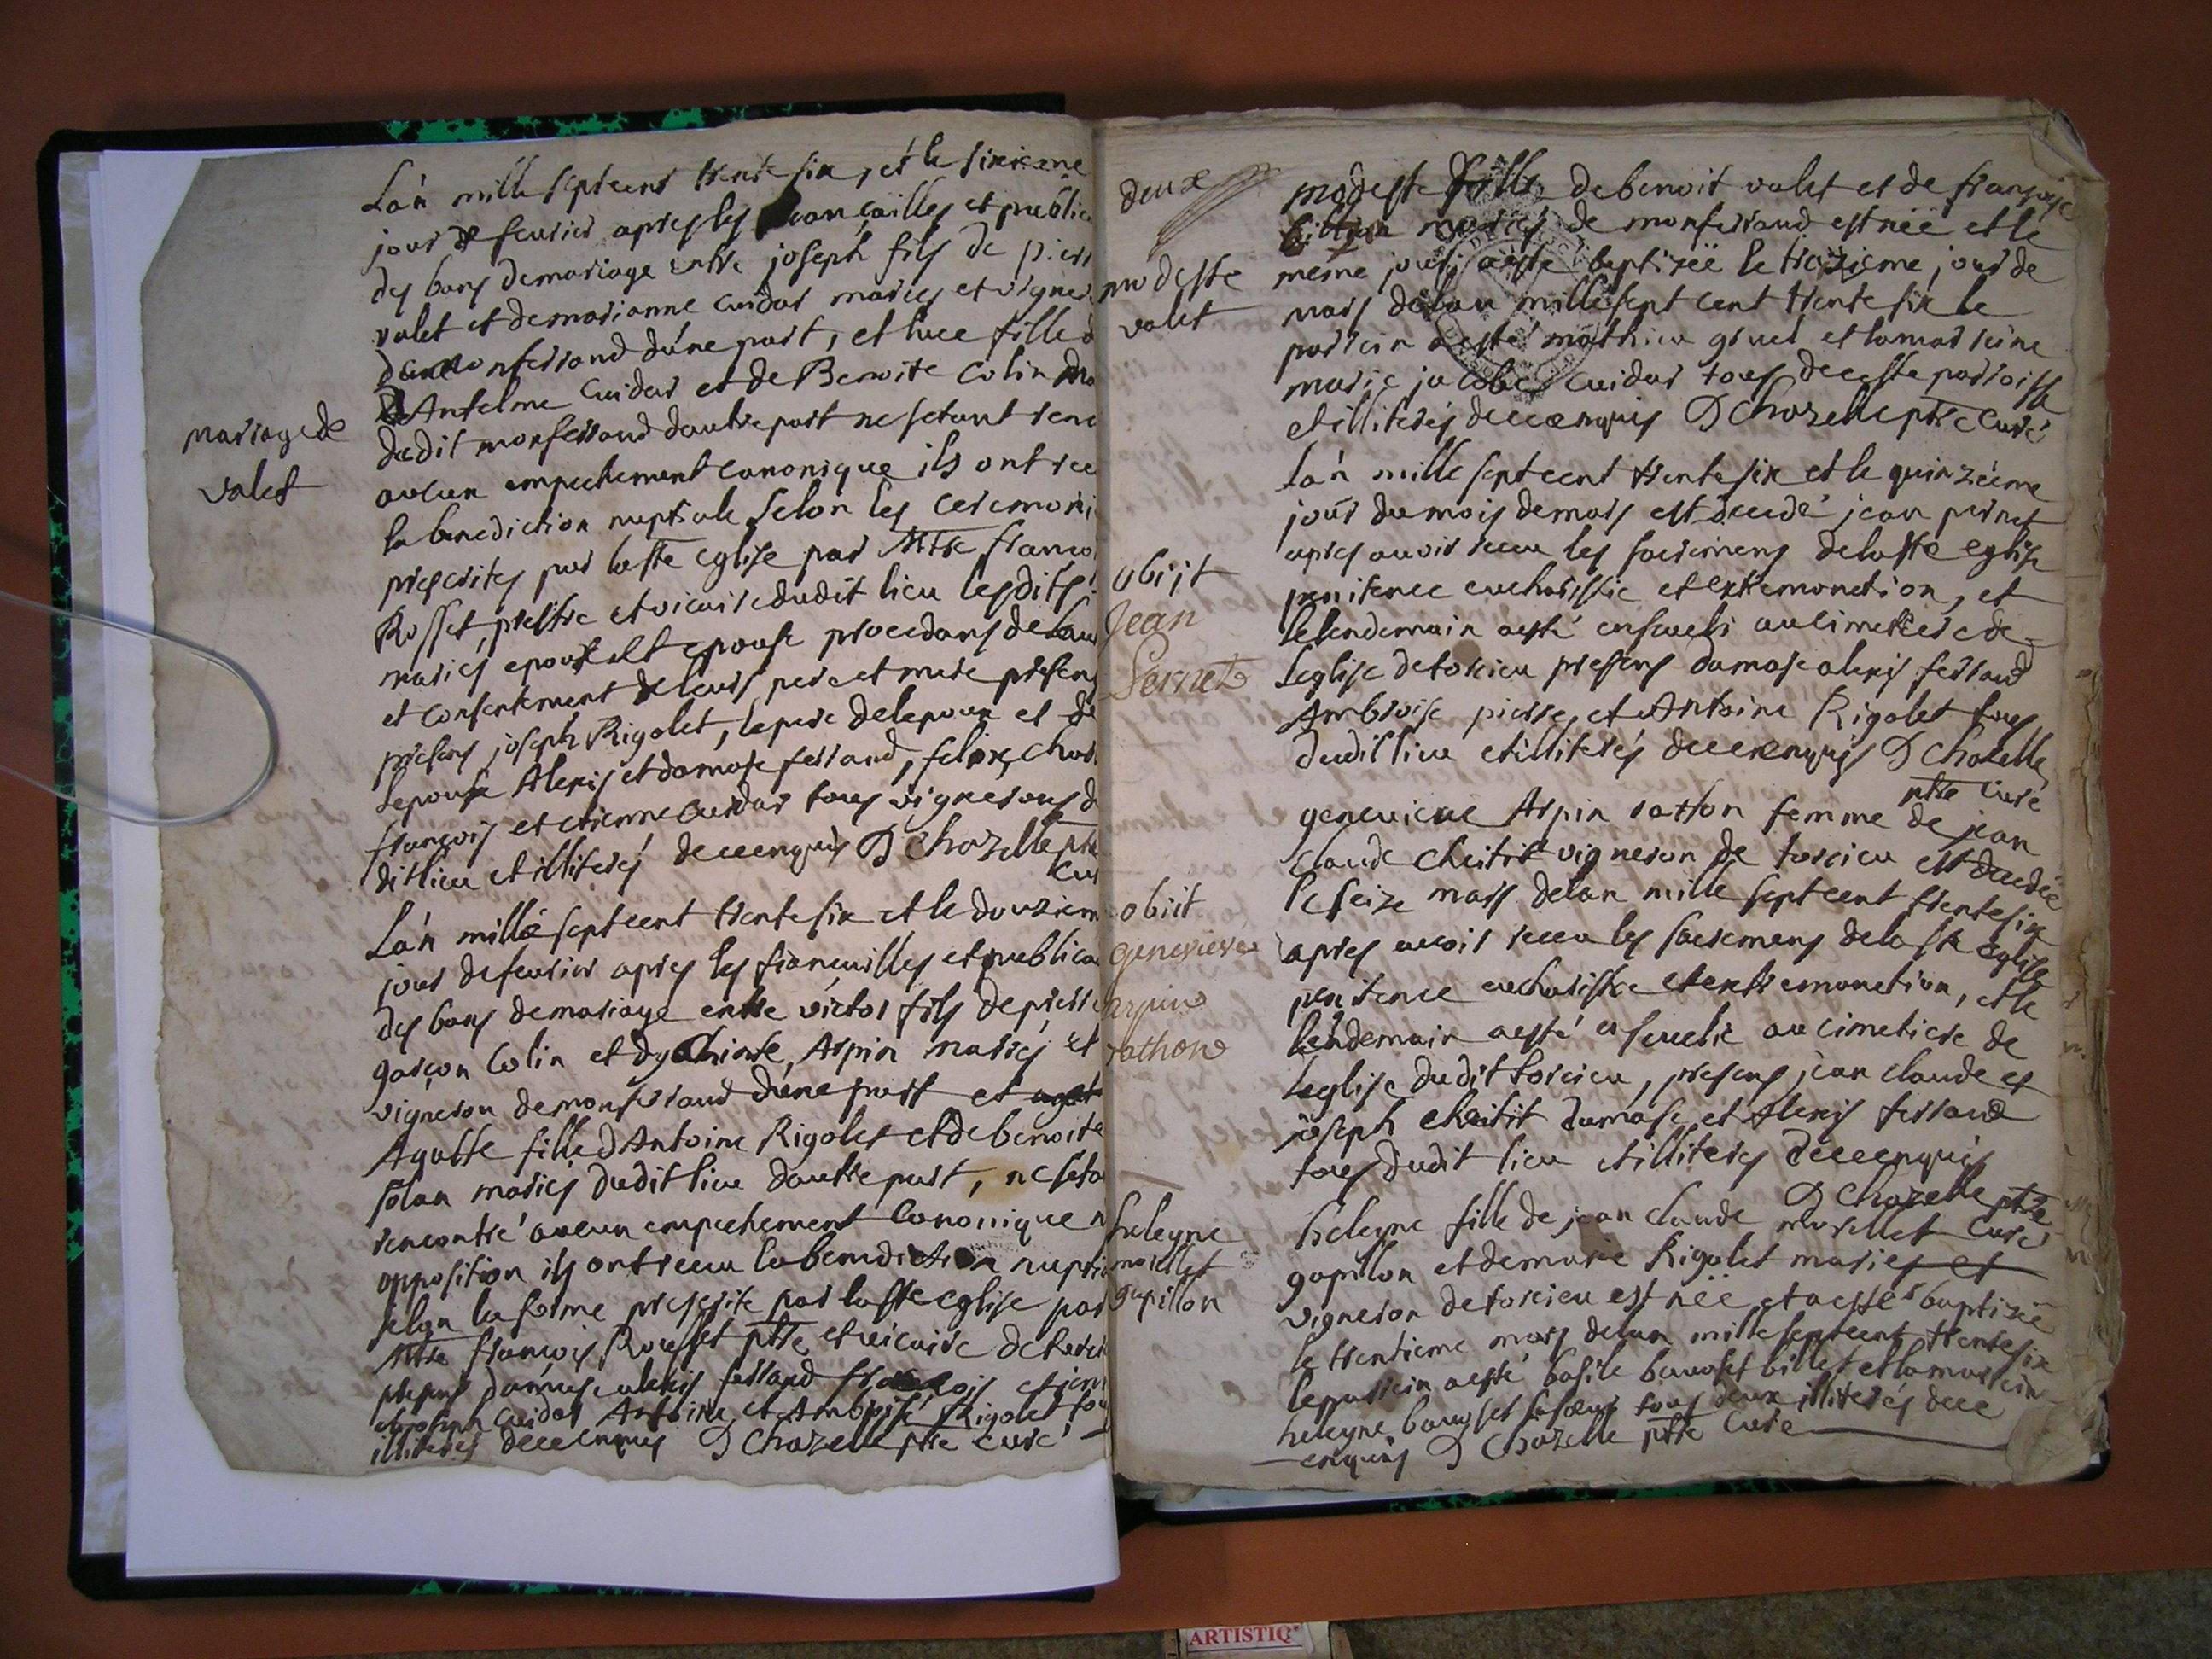 Lán mille septcent trente six, et le sixieme
jour de feurier apres les fiancailles et public
des bans de mariage entre joseph fils de pier
valet et de marianne cuidar maries et vigner
de monferrand dúne part, et luce fille d
D Antelme Cuidar et de Benoite Colin ma
dudit monferrand dautre part ne setant renc
aucun empechement canonique ils ont rec
la benediction nuptiale selon les ceremoni
prescrites par laste eglise par Mtre franco
Rosset, prestre et vicaire dudit lieu lesdits
mariés epoux et epouse procedans de lau
et consentement de leurs pere et mere presens
presens joseph Rigolet, lepere delepoux et de
Lepouse Alexis et damase ferrand, felix, char
francois et etienne cuidar tous vignerons d
ditlieu et illiterés deceenquis D Chazelle ptre
cur
mariage de
valet
Lán mille septcent trente six et le douziem
jour defeurier apres les fiancailles et publica
des bans demariage entre victor fils depierre
garçon Colin et dyachinte Arpin mariés et
vigneron demonferrand dúne part et
Agathe fille dAntoine Rigolet et de benoite
solan mariés dudit lieu dautre part, ne seta
rencontré aucun empechement Canonique n
opposition ils ont receu la benediction nupti
selon la forme prescrite par laste eglise par
Mtre francois Rousset ptre et vicaire de torci
presens damase alexis ferrand francois etien
et joseph Cuidar Antoine et Ambroise Rigolet tou
illiterés deceenquis D Chazelle ptre curé
deux
modeste
valet
modeste fille de benoit valet et de françoise
mariés de monferrand est née et le
même jour aeste baptizéé le treizieme jour de
mars delan mille sept cent trente six le
parrein aesté mathieu gruel et lamarreine
marie jacobé cuidar tous deceste parroisse
et illiterés deceenquis D Chazelle ptre curé
obijt
Jean
Pernet
lán mille septcent trente six et le quinziéme
jour du mois demars est decedé jean pernet
apres auoir receu les sacremens delaste eglise
penitence eucharistie et extremonction, et
lelendemain aesté enseueli aucimetiere de
Leglise detorcieu presens damase alexis ferrand
Ambroise pierre, et Antoine Rigolet tous
dudit lieu et illiterés deceenquis D Chazelle
ptre curé
obiit
geneuieue
arpin
rathon
geneuieue Arpin ratton femme de jean
claude cheitit vigneron de torcieu est decedée
le seize mars delan mille septcent trente six
apres auoir receu les sacremens delaste eglise
penitence eucharistie et extremonction, et le
lendemain aesté enseuelie aucimetiere de
leglise dudit torcieu, presens jean claude et
joseph cheitit damase et Alexis ferrand
tous dudit lieu et illiterés deceenquis
D Chazelle ptre
curé
heleyne
morellet
gapillon
heleyne fille de jean claude morellet
gapillon et demarie Rigolet mariés et
vigneron detorcieu est néé et aesté baptizéé
le trentieme mars delan mille septcent trente six
leparrein aesté basile bauoset billet et lamarrein
heleyne bauoset sasoeur tous deux illiterés dece
enquis D Chazelle ptre curé
ARTISTIQ